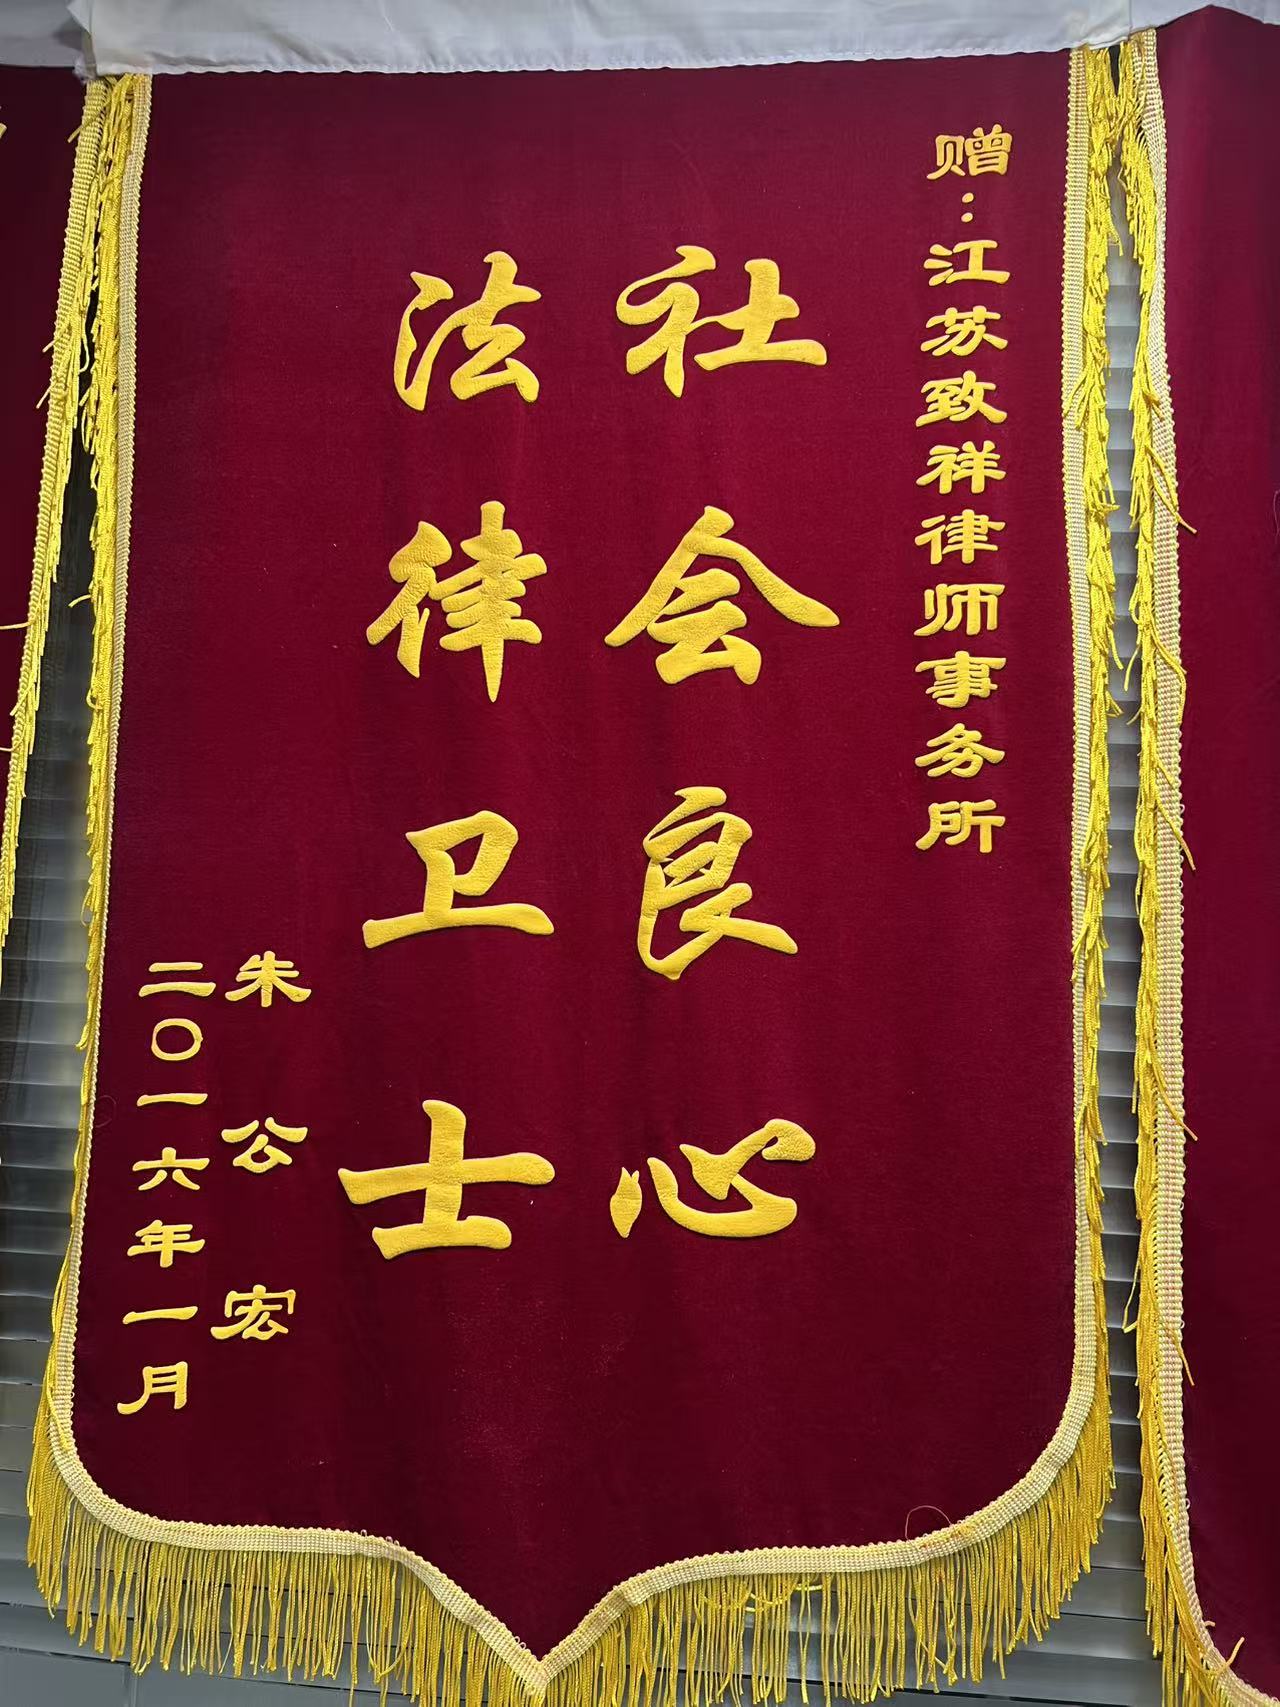 赠：江苏致祥律师事务所
社会良心
法律卫士
朱公宏
二〇一六年一月